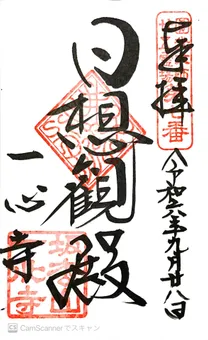 奉拝
令和六年九月廿八日
日想観殿
一心寺
CamScannerでスキャン